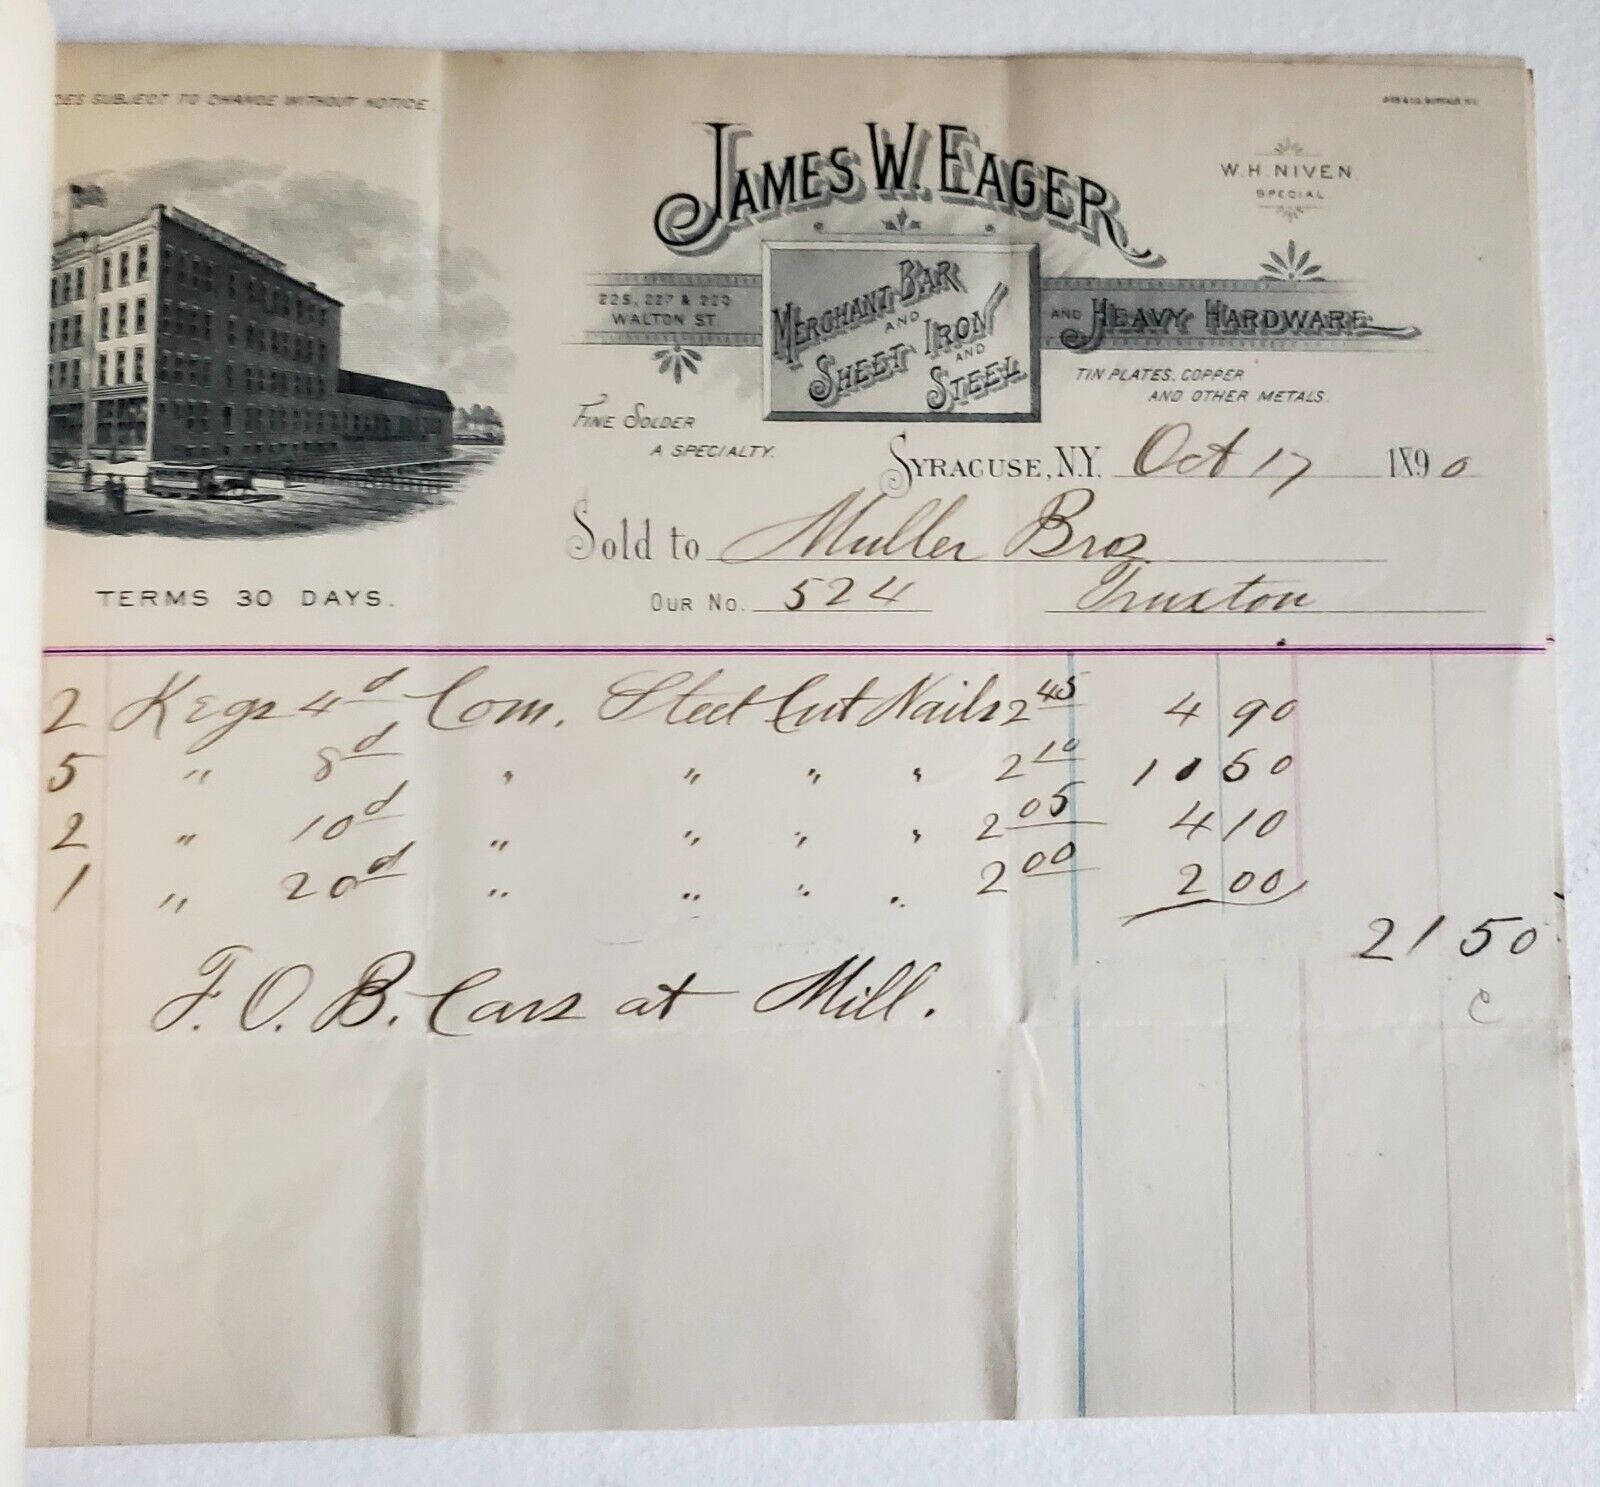 SUBJECT TO CHANGE WITHOUT NOTICE.
JAMES W. EAGER
W. H. NIVEN
SPECIAL
225, 227 & 229
WALTON ST
MERCHANT BAR
AND
SHEET IRON
AND
STEEL
AND HEAVY HARDWARE
FINE SOLDER
A SPECIALTY.
TIN PLATES, COPPER
AND OTHER METALS.
SYRACUSE, N.Y. Oct 17 1890
Sold to Muller Bros
TERMS 30 DAYS.
OUR No. 524 Truxton
2 Kegs 4d Com. Steel Cut Nails 2 45 4 90
5 " 8d " " " " 2 10 10 50
2 " 10d " " " " 2 05 4 10
1 " 20d " " " " 2 00 2 00
21 50
F. O. B. Cars at Mill.
C